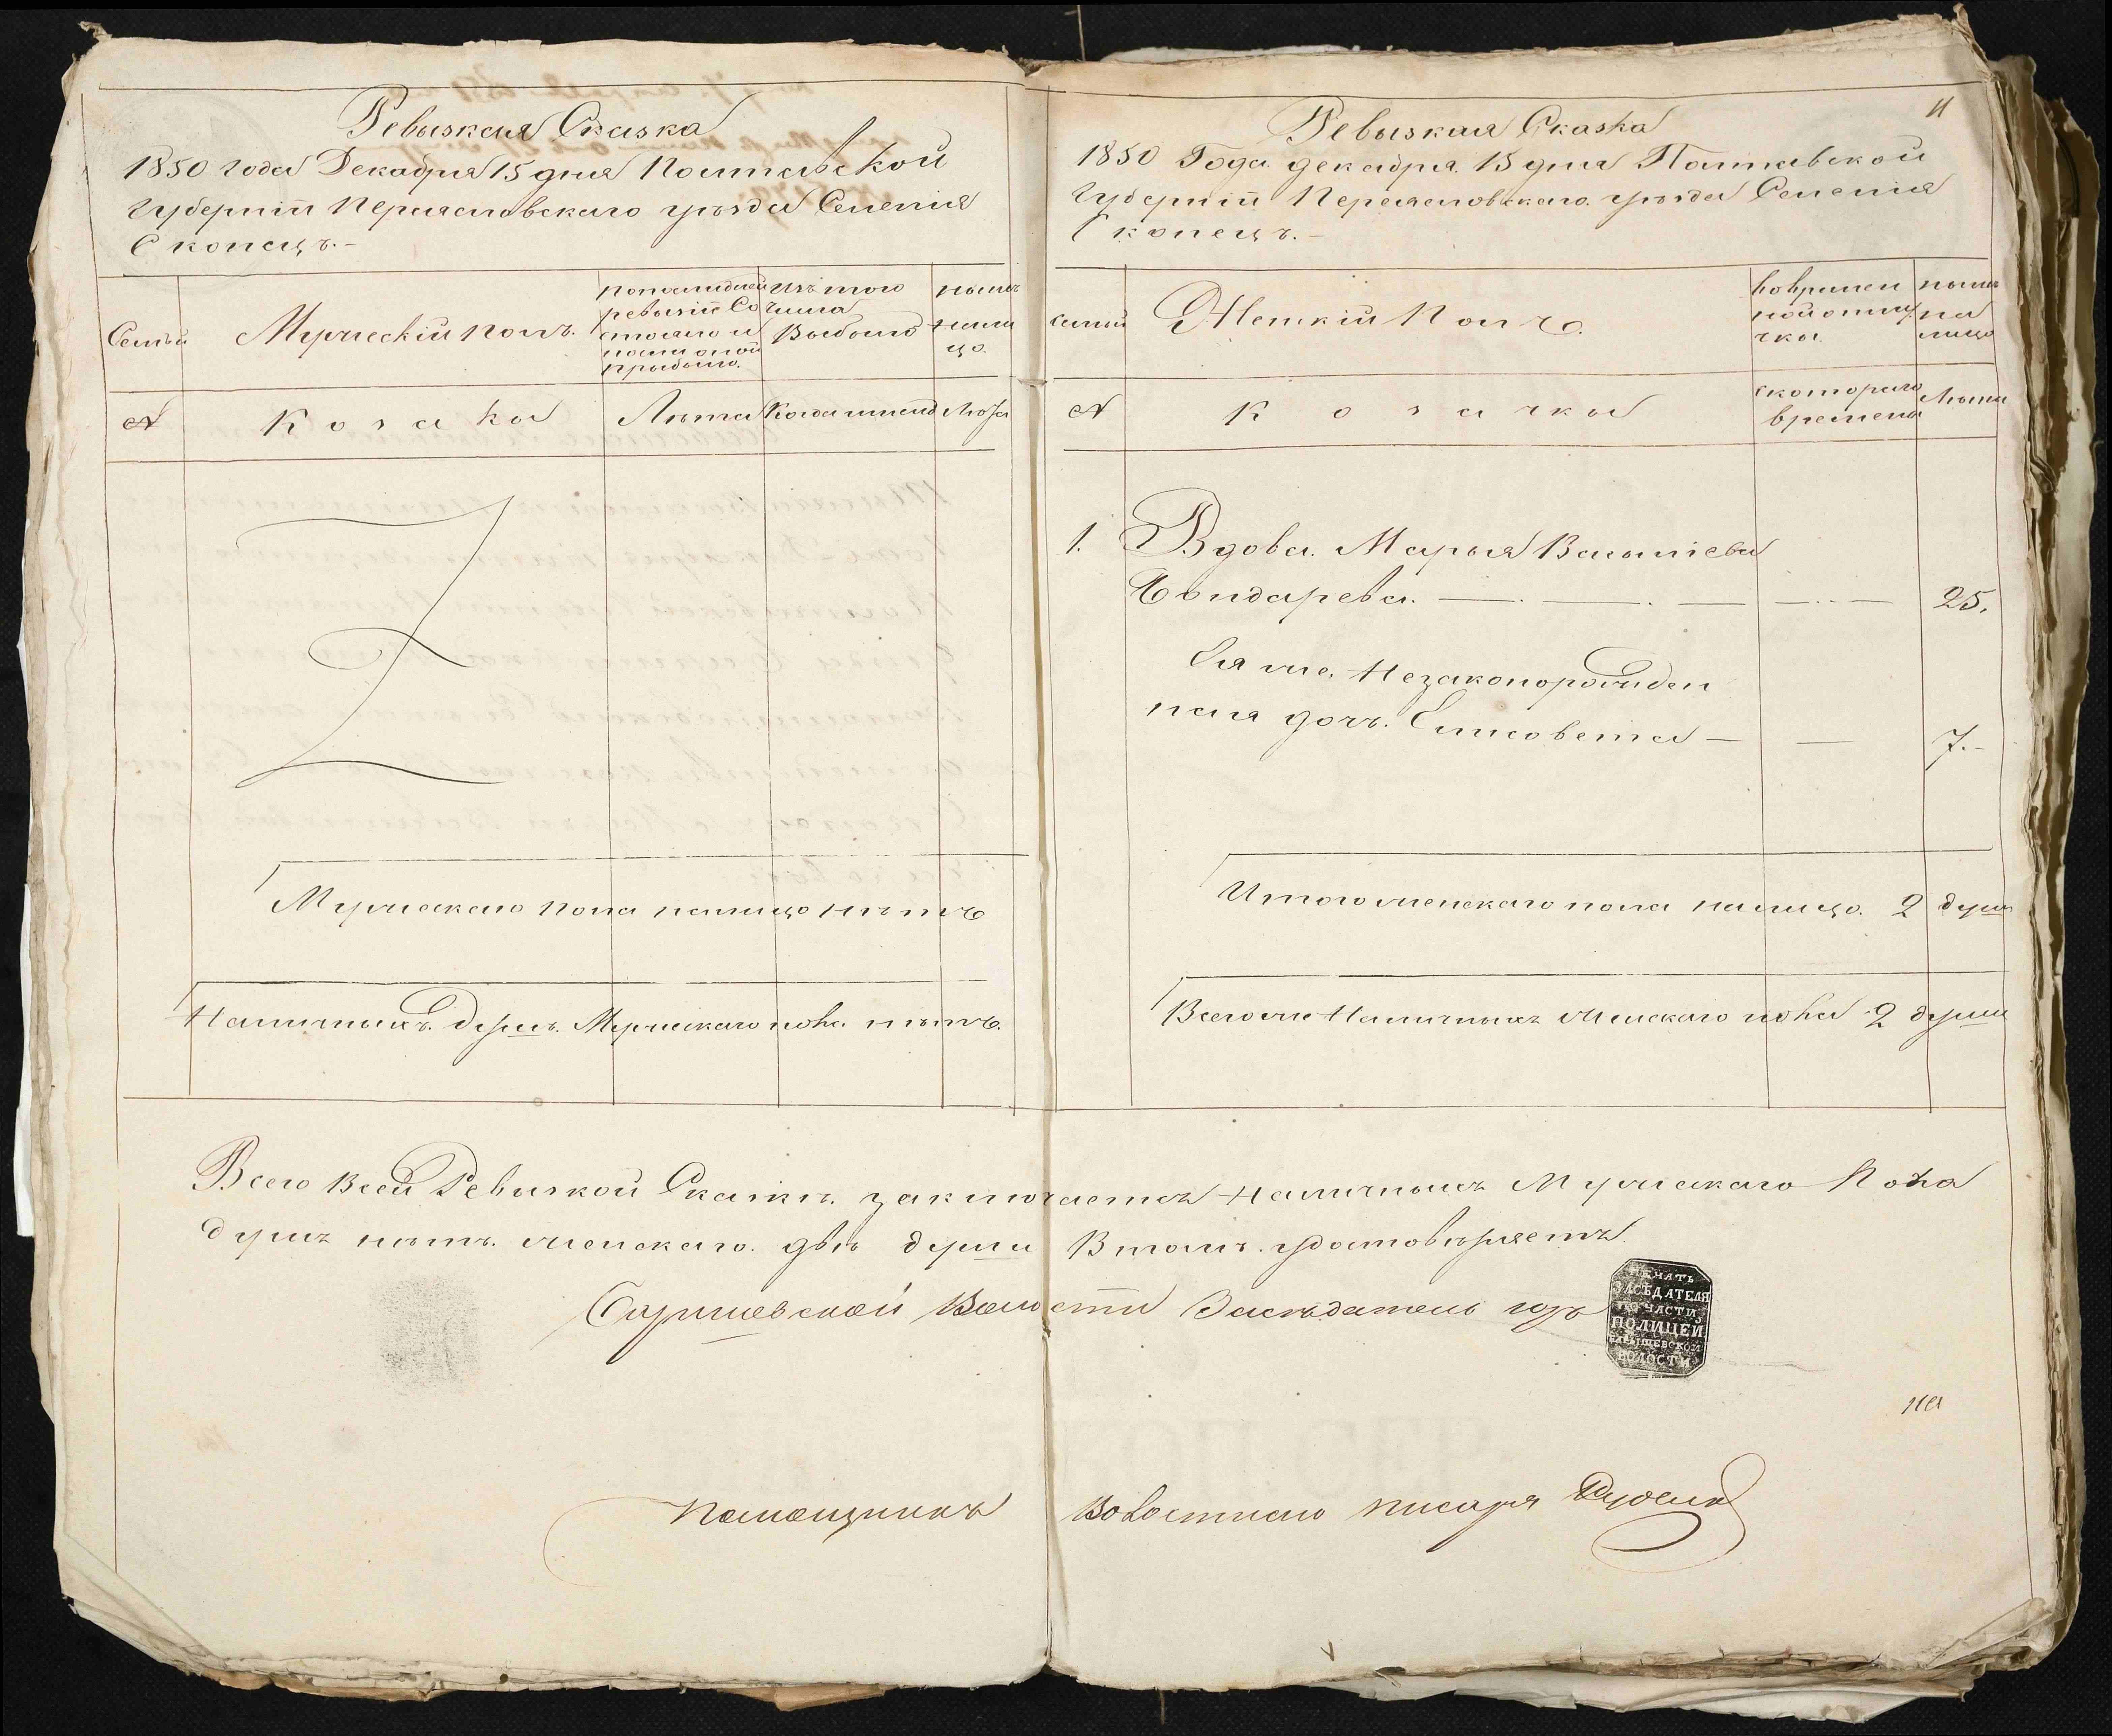 Ревызкая Сказка
1850 года Декабря 15 дня Полтавской
Губерніи Переяславского уѣзда Селенія
Скопецъ.-
Семьи
Мужескій полъ.
По последней
ревызіи Со
стояло и
после оной
прыбыло.
Изъ того
Числа
Выбыло
ныне
на ли
цо.
№
Козаки
Лѣта
Когда имено
Лѣта
Мужескаго пола налицо нѣтъ
Наличныхъ. душъ. Мужескаго пола. нѣтъ.
11
Ревызкая Сказка
1850 Года декабря. 15 дня Полтавской
Губерніи Переяславскаго. уѣзда Селенія
Скопецъ.-
семьи
Женскій Полъ.
Вовремен
ной отлу
чки.
ныне
на
лицо
№
Козачки
скотораго
времены
Лѣта
1. Вдова. Марья Васылiева
Бондарева. — — — — 25.
Ея же. Незаконорожден
ная дочъ. Елисовета — — 7.-
Итого женскаго пола налицо. 2 душы
Всего же Наличныхъ женскаго пола 2 душы
Всего Всей Ревизкой Сказкѣ. заключается Наличныхъ Мужескаго Пола
душъ нѣтъ. женскаго. двѣ душы Втомъ. удостовѣряетъ
Барышевской Волости Заседатель
ПЕЧАТЬ
ЗАСѢДАТЕЛЯ
ПО ЧАСТИ
ПОЛИЦЕЙ
БАРЫШЕВСКОЙ
ВОЛОСТИ
на
Помощникъ Волостного писаря